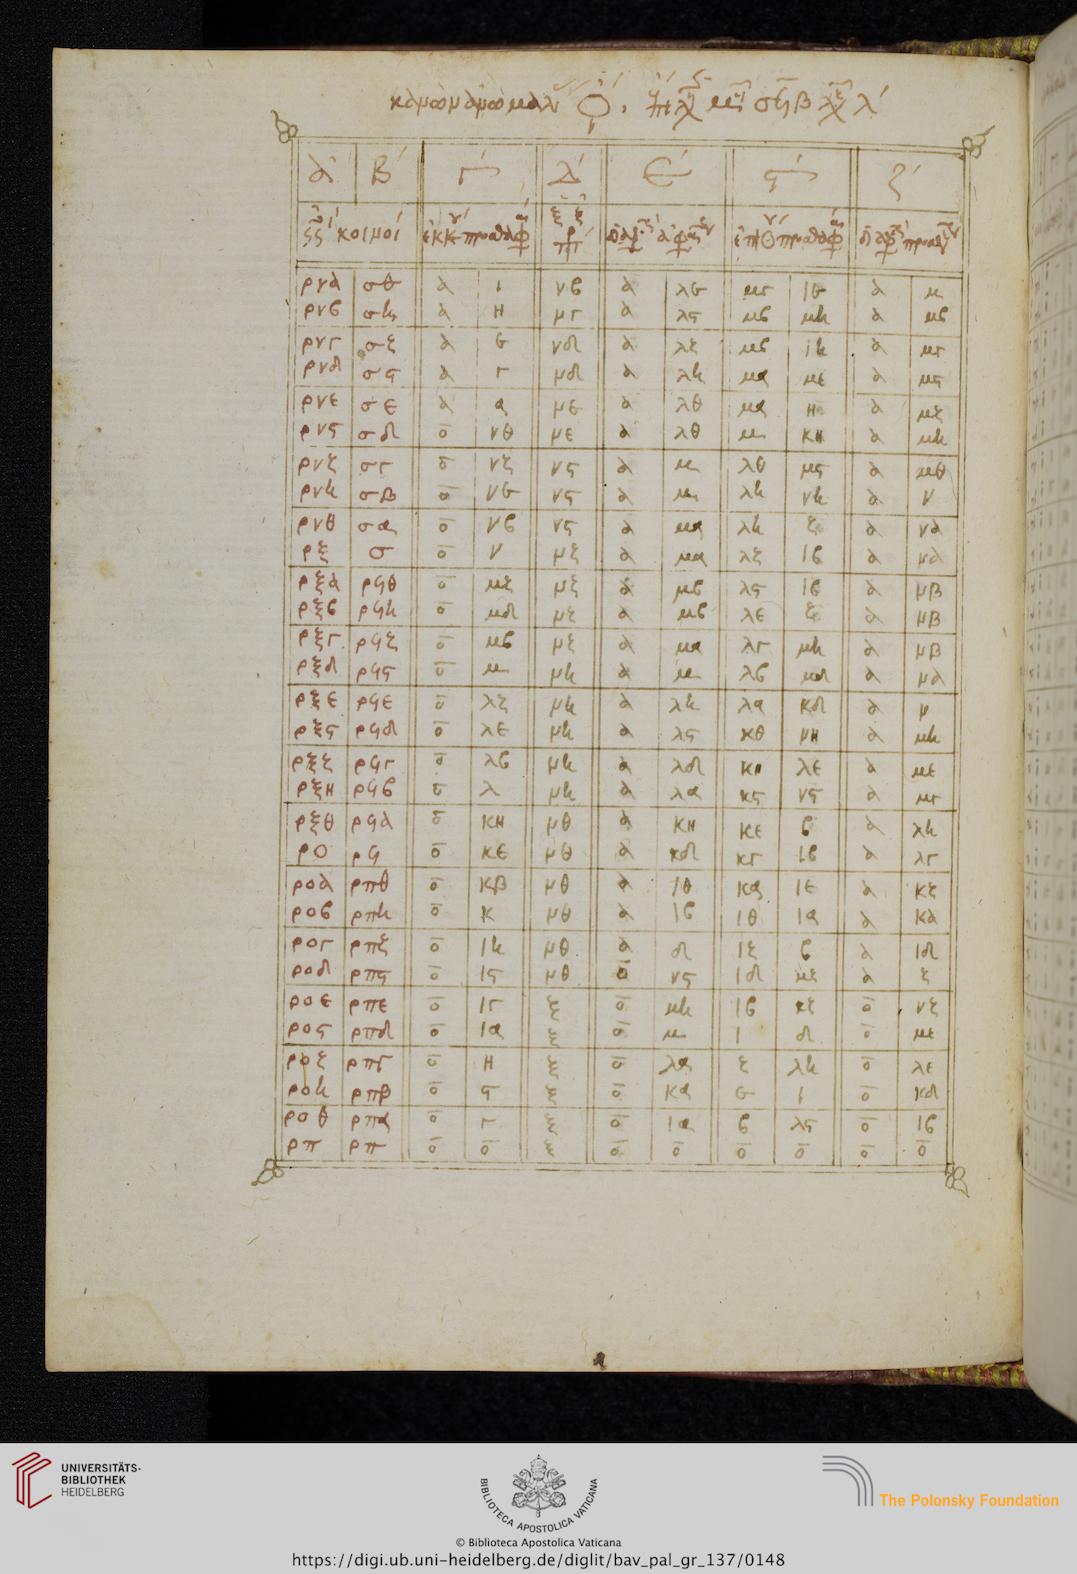 α β γ δ ε ϛ ζ
κοινοί
ρνα σθ α ι νβ α λε μγ ιε α μ
ρνβ ση α η μγ α λϛ μβ μη α μβ
ρνγ σζ α ε νδ α λζ μβ ιη α μγ
ρνδ σϛ α γ μδ α λη μα με α μϛ
ρνε σε α α με α λθ μα η α μζ
ρνϛ σδ ο νθ με α λθ μ κη α μη
ρνζ σγ ο νζ νϛ α μ λθ μϛ α μθ
ρνη σβ ο νε νϛ α μ λη νη α ν
ρνθ σα ο νβ νϛ α μα λη ζ α να
ρξ σ ο ν μζ α μα λζ ιβ α μα
ρξα ρϟθ ο μζ μζ α μβ λϛ ιβ α μβ
ρξβ ρϟη ο μδ μζ α μβ λε ζ α μβ
ρξγ ρϟζ ο μβ μζ α μα λγ μη α μβ
ρξδ ρϟϛ ο μ μη α μ λβ μδ α μα
ρξε ρϟε ο λζ μη α λη λα κδ α μ
ρξϛ ρϟδ ο λε μη α λϛ κθ μη α μη
ρξζ ρϟγ ο λβ μη α λδ κη λε α με
ρξη ρϟβ ο λ μη α λα κϛ νϛ α μγ
ρξθ ρϟα ο κη μθ α κη κε β α λη
ρο ρϟ ο κε μθ α κδ κγ ιβ α λγ
ροα ρπθ ο κβ μθ α ιθ κα ιε α κζ
ροβ ρπη ο κ μθ α ιβ ιθ ια α κα
ρογ ρπζ ο ιη μθ α δ ιζ β α ιδ
ροδ ρπϛ ο ιϛ μθ ο νϛ ιδ μζ α ζ
ροε ρπε ο ιγ ξ ο μη ιβ κζ ο νζ
ροϛ ρπδ ο ια ξ ο μ ι δ ο με
ροζ ρπγ ο η ξ ο λα ζ λη ο λε
ροη ρπβ ο ϛ ξ ο κα ε ι ο κδ
ροθ ρπα ο γ ξ ο ια β λϛ ο ιβ
ρπ ρπ ο ο ξ ο ο ο ο ο ο
UNIVERSITÄTS-
BIBLIOTHEK
HEIDELBERG
BIBLIOTECA APOSTOLICA VATICANA
The Polonsky Foundation
© Biblioteca Apostolica Vaticana
https://digi.ub.uni-heidelberg.de/diglit/bav_pal_gr_137/0148